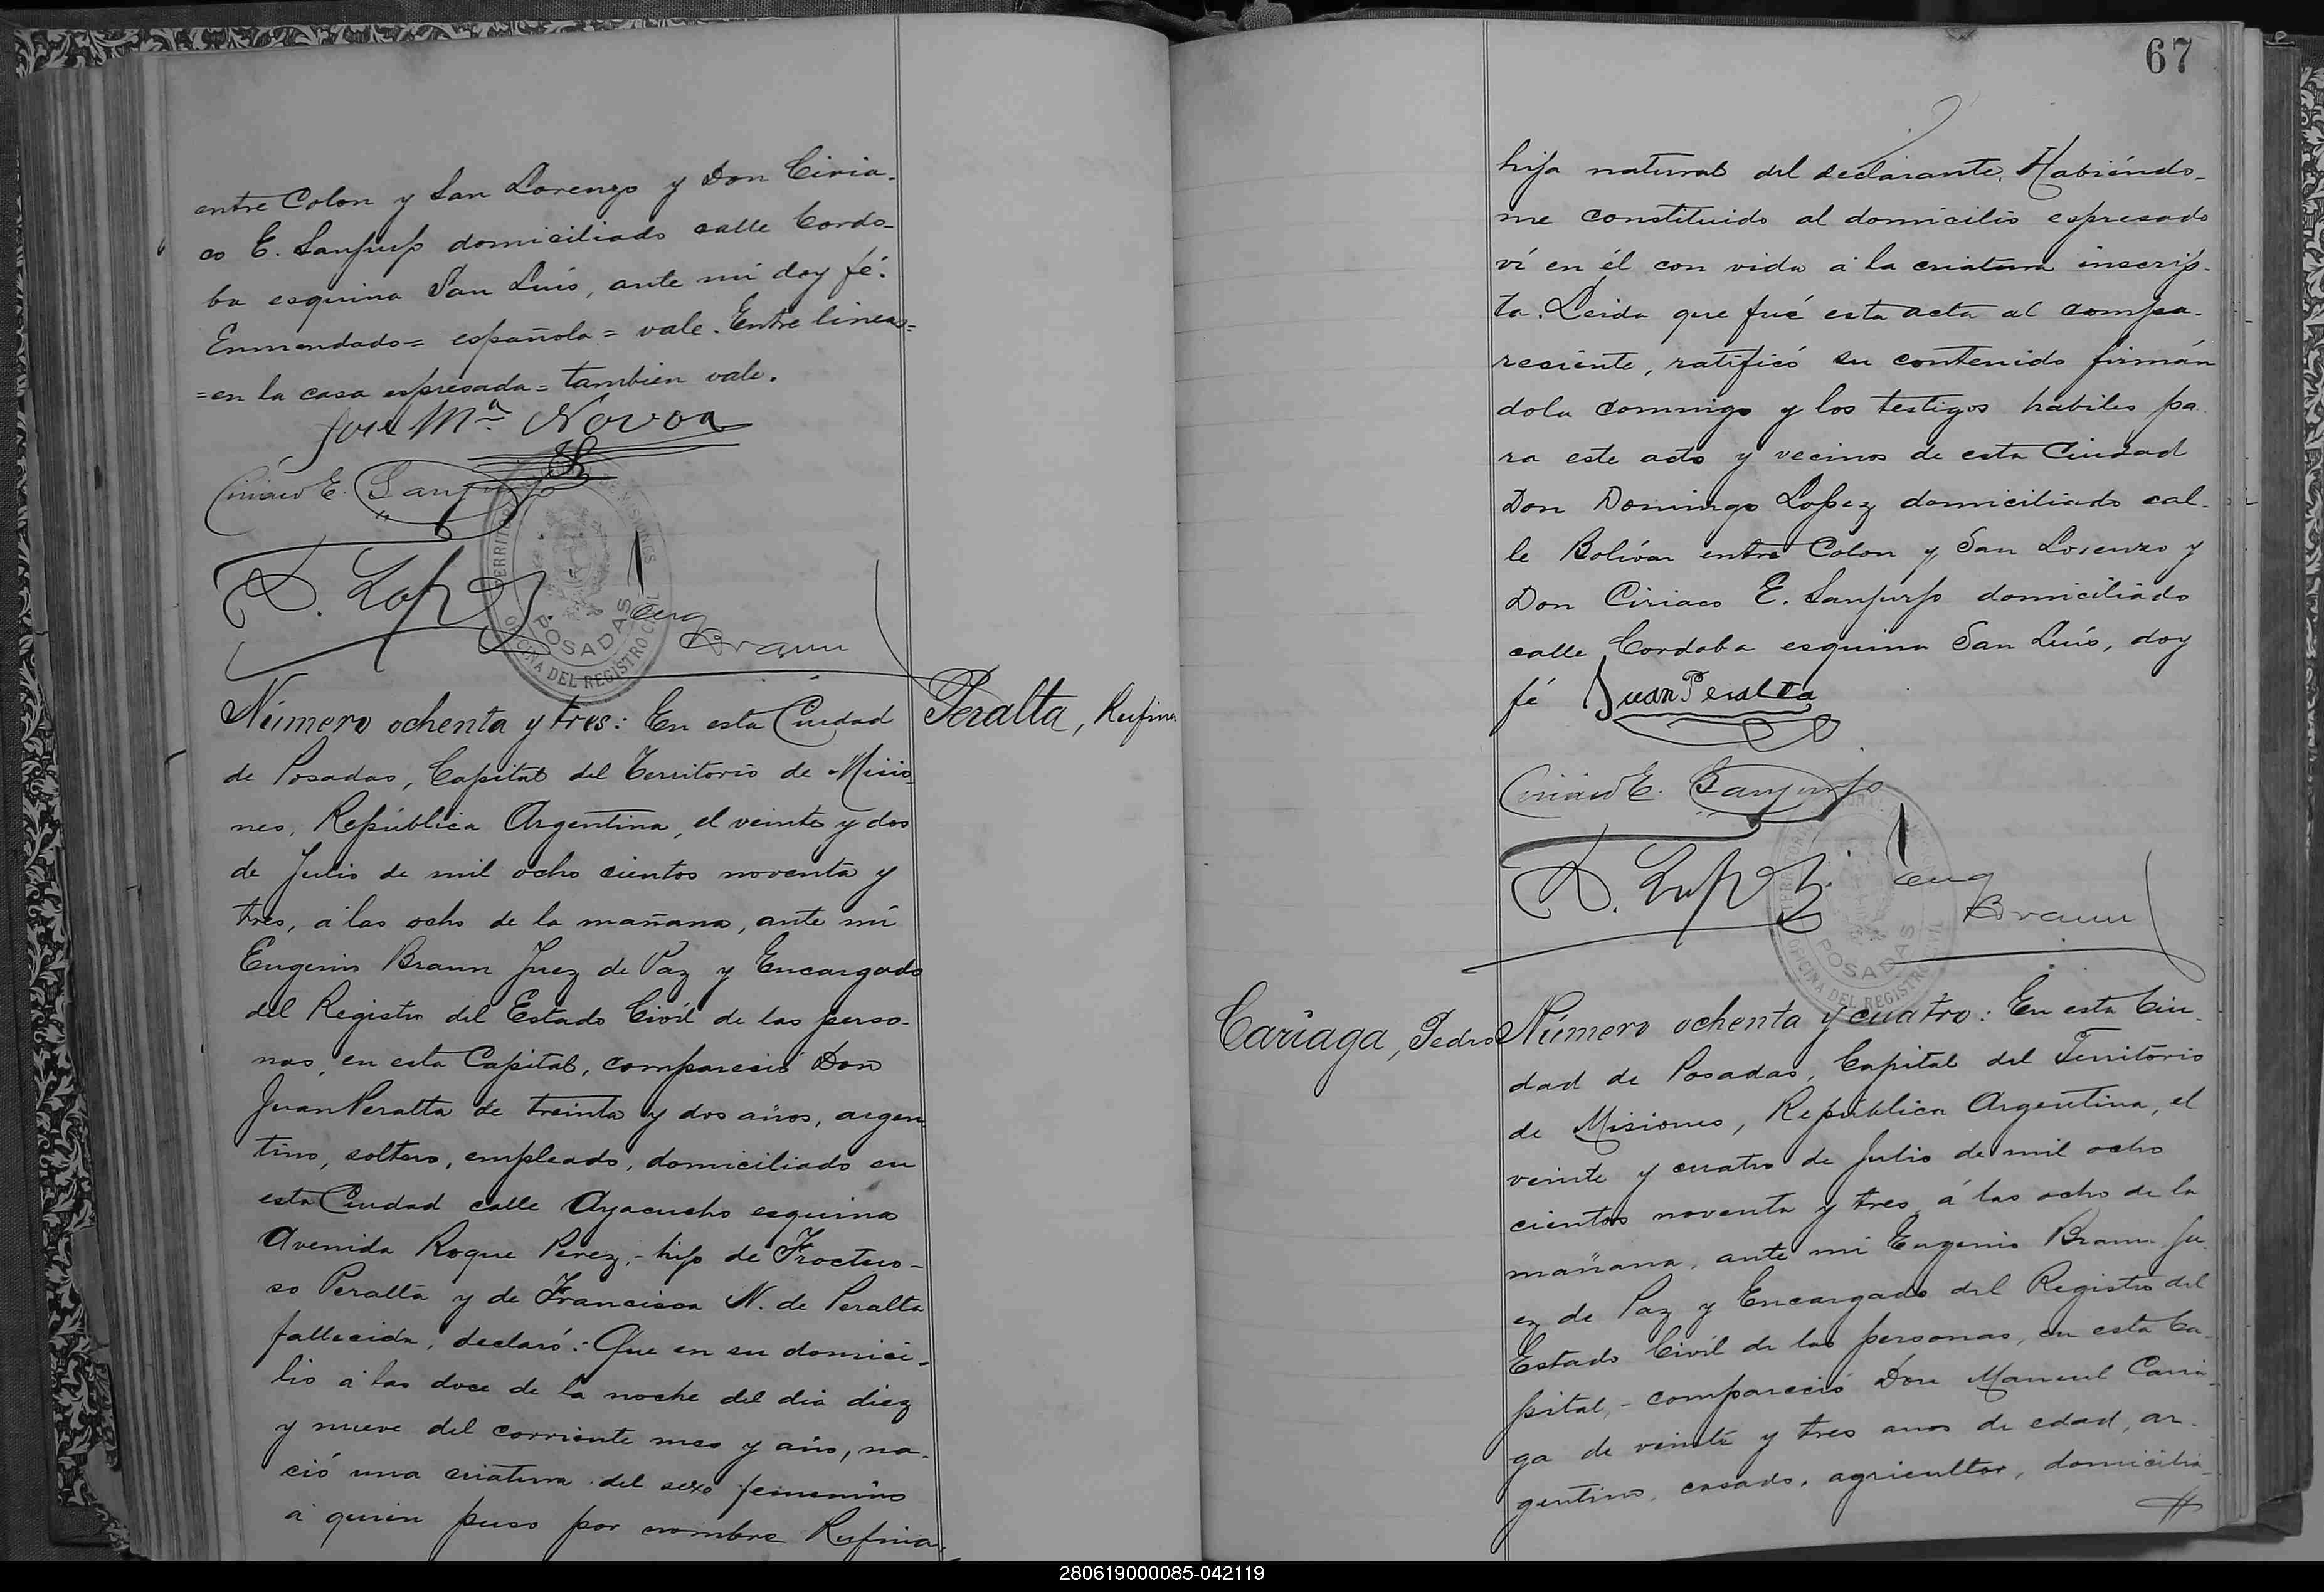 entre Colon y San Lorenzo y Don Ciria-
co E. Sanjurjo domiciliado calle Cordo-
ba esquina San Luis, ante mi doy fé.
Enmendado= española= vale. Entre lineas=
=en la casa espresada= tambien vale.
José Mª Novoa
Ciriaco E. Sanjurjo
D. Lopez
Eug Braun
TERRITORIO MISIONES
POSADAS
OFICINA DEL REGISTRO CIVIL
Peralta, Rufina
Número ochenta y tres: En esta Ciudad
de Posadas, Capital del Territorio de Misio-
nes, República Argentina, el veinte y dos
de Julio de mil ocho cientos noventa y
tres, á las ocho de la mañana, ante mi
Eugenio Braun Juez de Paz y Encargado
del Registro del Estado Civil de las perso-
nas, en esta Capital, compareció Don
Juan Peralta de treinta y dos años, argen
tino, soltero, empleado, domiciliado en
esta Ciudad calle Ayacucho esquina
Avenida Roque Perez,- hijo de Froctuo-
so Peralta y de Francisca N. de Peralta
fallecida, declaró: Que en su domici-
lio á las doce de la noche del dia diez
y nueve del corriente mes y año, na-
ció una criatura del sexo femenino
á quien puso por nombre Rufina,
67
hija natural del declarante. Habiéndo-
me constituido al domicilio espresado
ví en él con vida á la criatura inscrip-
ta. Leida que fué esta acta al compa-
reciente, ratificó su contenido firmán
dola conmigo y los testigos habiles pa
ra este acto y vecinos de esta Ciudad
Don Domingo Lopez domiciliado cal-
le Bolívar entre Colon y San Lorenzo y
Don Ciriaco E. Sanjurjo domiciliado
calle Cordoba esquina San Luis, doy
fé Juan Peralta
Ciriaco E. Sanjurjo
D. Lopez
Eug Braun
TERRITORIO
POSADAS
OFICINA DEL REGISTRO CIVIL
Cariaga, Pedro
Número ochenta y cuatro: En esta Ciu-
dad de Posadas, Capital del Territorio
de Misiones, República Argentina, el
veinte y cuatro de Julio de mil ocho
cientos noventa y tres á las ocho de la
mañana, ante mi Eugenio Braun Ju-
ez de Paz y Encargado del Registro del
Estado Civil de las personas, en esta Ca-
pital,- compareció Don Manuel Caria-
ga de veinte y tres años de edad, ar-
gentino, casado, agricultor, domicilia-
280619000085-042119